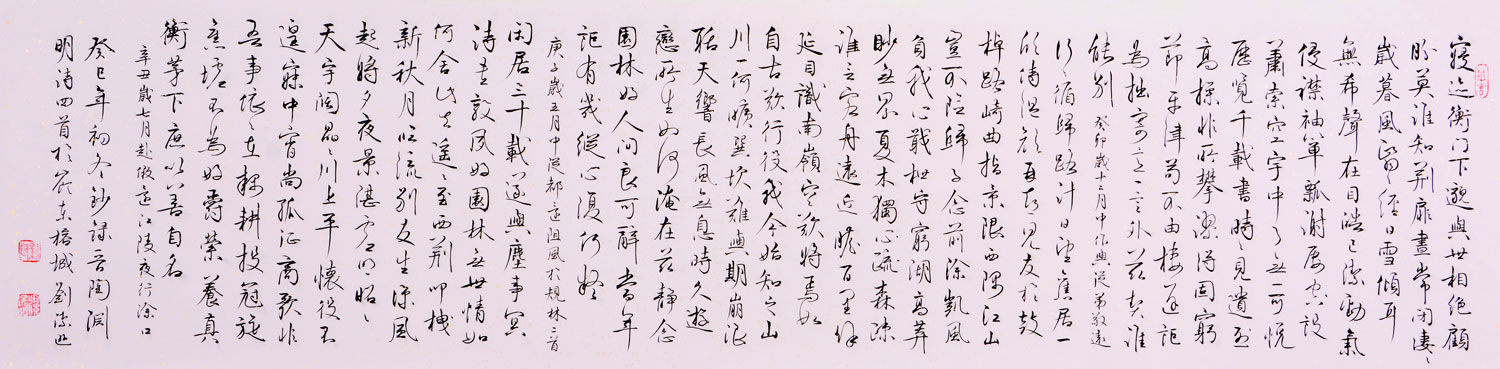 寢迹衡門下邈與世相絕顧
盼莫誰知荆扉晝常閉凄々
歲暮風翳々經日雪傾耳
無希聲在目皓已潔勁氣
侵襟袖簞瓢謝屢空設
蕭索空宇中了無一可悅
歷覽千載書時々見遺烈
高操非所攀深得固窮
節平津苟不由棲遲詎
為拙寄意一言外茲契誰
能別 癸卯歲十二月中作與從弟敬遠
行々循歸路計日望舊居一
欣侍溫顏再喜見友于鼓
棹路崎曲指景限西隅江山
豈不險歸子念前塗凱風
負我心戢枻守窮湖高莽
眇無界夏木獨森疎
誰言客舟遠近瞻百里餘
延目識南嶺空歎將焉如
自古歎行役我今始知之山
川一何曠巽坎難與期崩浪
聒天響長風無息時久遊
戀所生如何淹在茲靜念
園林好人間良可辭當年
詎有幾縱心復何疑
庚子歲五月中從都還阻風於規林二首
閑居三十載遂與塵事冥
詩書敦夙好園林無世情如
何舍此去遙々至西荆叩枻
新秋月臨流別友生涼風
起將夕夜景湛虛明昭々
天宇闊皛々川上平懷役不
遑寐中宵尚孤征商歌非
吾事依々在耦耕投冠旋
舊墟不為好爵縈養真
衡茅下庶以善自名
辛丑歲七月赴假還江陵夜行塗口
癸巳年初冬抄録晉陶淵
明詩四首於嶺東榕城劉